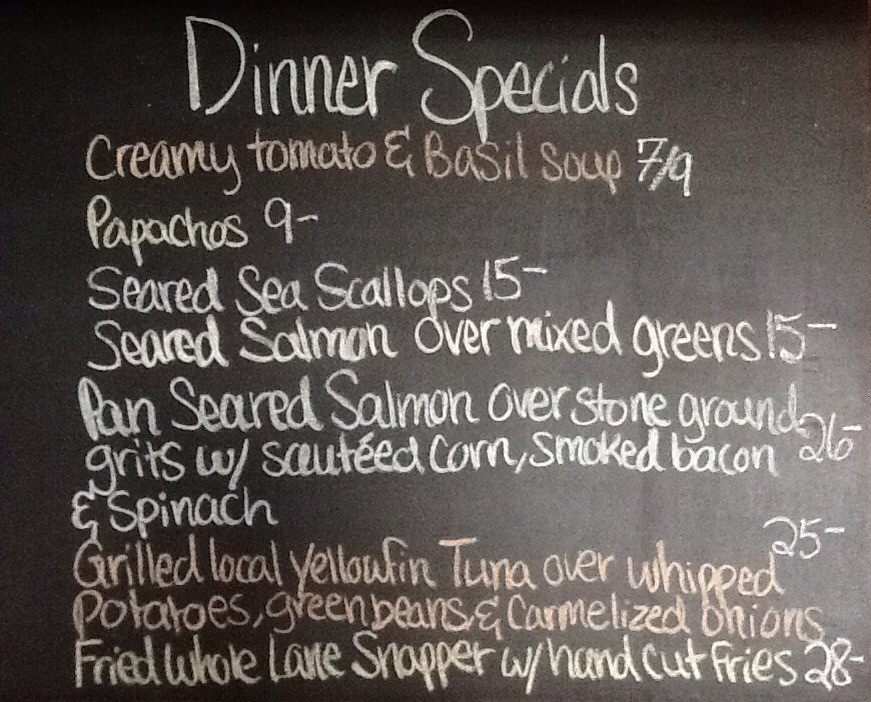 Dinner Specials
Creamy tomato & Basil Soup 7/9
Papachos 9-
Seared Sea Scallops 15-
Seared Salmon over mixed greens 15-
Pan Seared Salmon over stone ground
grits w/ sautéed corn, smoked bacon 26-
& Spinach
25-
Grilled local yellowfin Tuna over whipped
Potatoes, green beans & Carmelized onions
Fried whole Lane Snapper w/ hand cut fries 28-